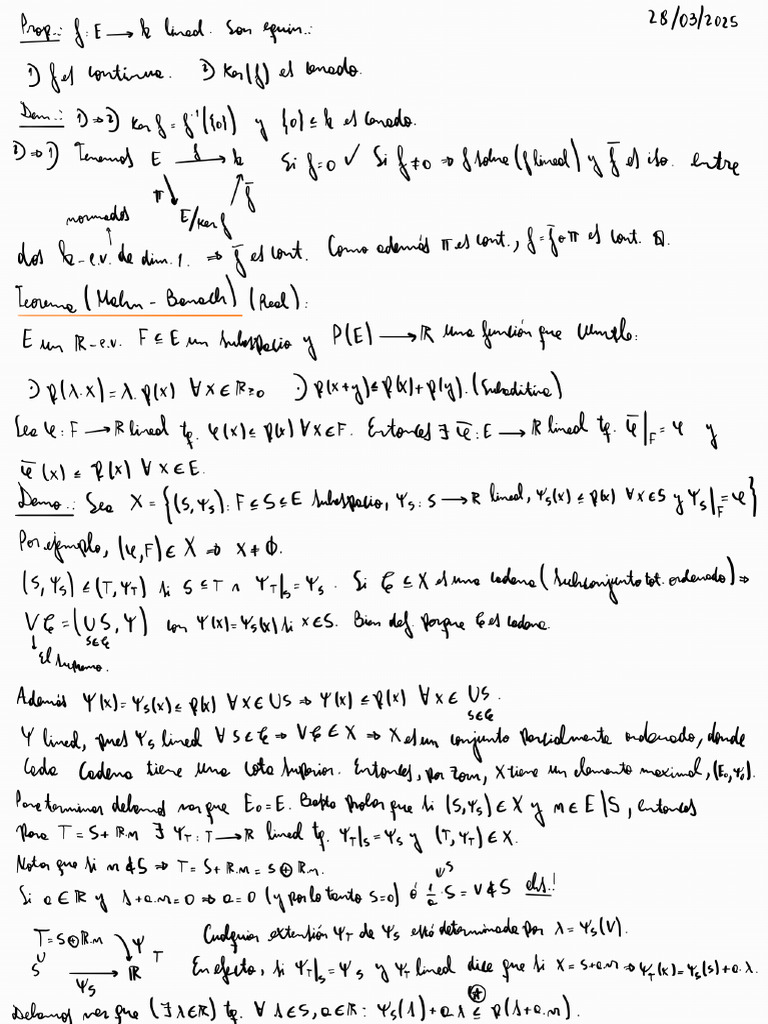 28/03/2025
Prop.: f: E → k lineal. Son equiv.:
1) f es continua. 2) Ker(f) es cerrado.
Dem.: 1)⇒2) Ker f = f⁻¹({0}) y {0} ⊆ k es cerrado.
2)⇒1) Tenemos E —f→ k Si f=0 ✓ Si f≠0 ⇒ f sobre (f lineal) y f̄ es iso. entre
π f̄
E/Ker f
normados
dos k-e.v. de dim. 1. ⇒ f̄ es cont. Como además π es cont., f = f̄∘π es cont.
Teorema (Hahn-Banach) (Real):
E un ℝ-e.v. F ⊆ E un subespacio y P(E) → ℝ una función que cumple:
·) p(λ·x) = λ·p(x) ∀x∈ℝ≥0 ·) p(x+y) ≤ p(x)+p(y). (Subaditiva)
Sea φ: F → ℝ lineal tq. φ(x) ≤ p(x) ∀x∈F. Entonces ∃ φ̄: E → ℝ lineal tq. φ̄|_F = φ y
φ̄(x) ≤ p(x) ∀x∈E.
Demo.: Sea X = {(S,Ψ_S): F⊆S⊆E subespacio, Ψ_S: S → ℝ lineal, Ψ_S(x) ≤ p(x) ∀x∈S y Ψ_S|_F = φ}
Por ejemplo, (φ,F)∈X ⇒ X ≠ ∅.
(S,Ψ_S) ≤ (T,Ψ_T) si S ⊆ T ∧ Ψ_T|_S = Ψ_S. Si ζ ⊆ X es una cadena (subconjunto tot. ordenado) ⇒
Vζ = (∪S, Ψ) con Ψ(x) = Ψ_S(x) si x∈S. Bien def. porque ζ es cadena.
S∈ζ
El supremo.
Además Ψ(x) = Ψ_S(x) ≤ p(x) ∀x∈∪S ⇒ Ψ(x) ≤ p(x) ∀x∈ ∪S.
S∈ζ
Ψ lineal, pues Ψ_S lineal ∀S∈ζ ⇒ Vζ∈X ⇒ X es un conjunto parcialmente ordenado, donde
cada cadena tiene una cota superior. Entonces, por Zorn, X tiene un elemento maximal, (E₀,Ψ₀).
Para terminar debemos ver que E₀=E. Basta probar que si (S,Ψ_S)∈X y m∈E\S, entonces
para T = S+ℝ.m ∃ Ψ_T: T → ℝ lineal tq. Ψ_T|_S = Ψ_S y (T,Ψ_T)∈X.
Notar que si m∉S ⇒ T = S+ℝ.m = S⊕ℝ.m.
Si a∈ℝ y s+a.m=0 ⇒ a=0 (y por lo tanto s=0) ó 1/a·S = v∉S abs.!
∨S
T=S⊕ℝ.m Ψ_T Cualquier extensión Ψ_T de Ψ_S está determinada por λ=Ψ_S(v).
∪
S —Ψ_S→ ℝ En efecto, si Ψ_T|_S = Ψ_S y Ψ_T lineal dice que si x=s+a.m ⇒ Ψ_T(x) = Ψ_S(s)+a.λ.
Debemos ver que (∃λ∈ℝ) tq. ∀s∈S, a∈ℝ: Ψ_S(s)+a.λ ≤ p(s+a.m).
⊛